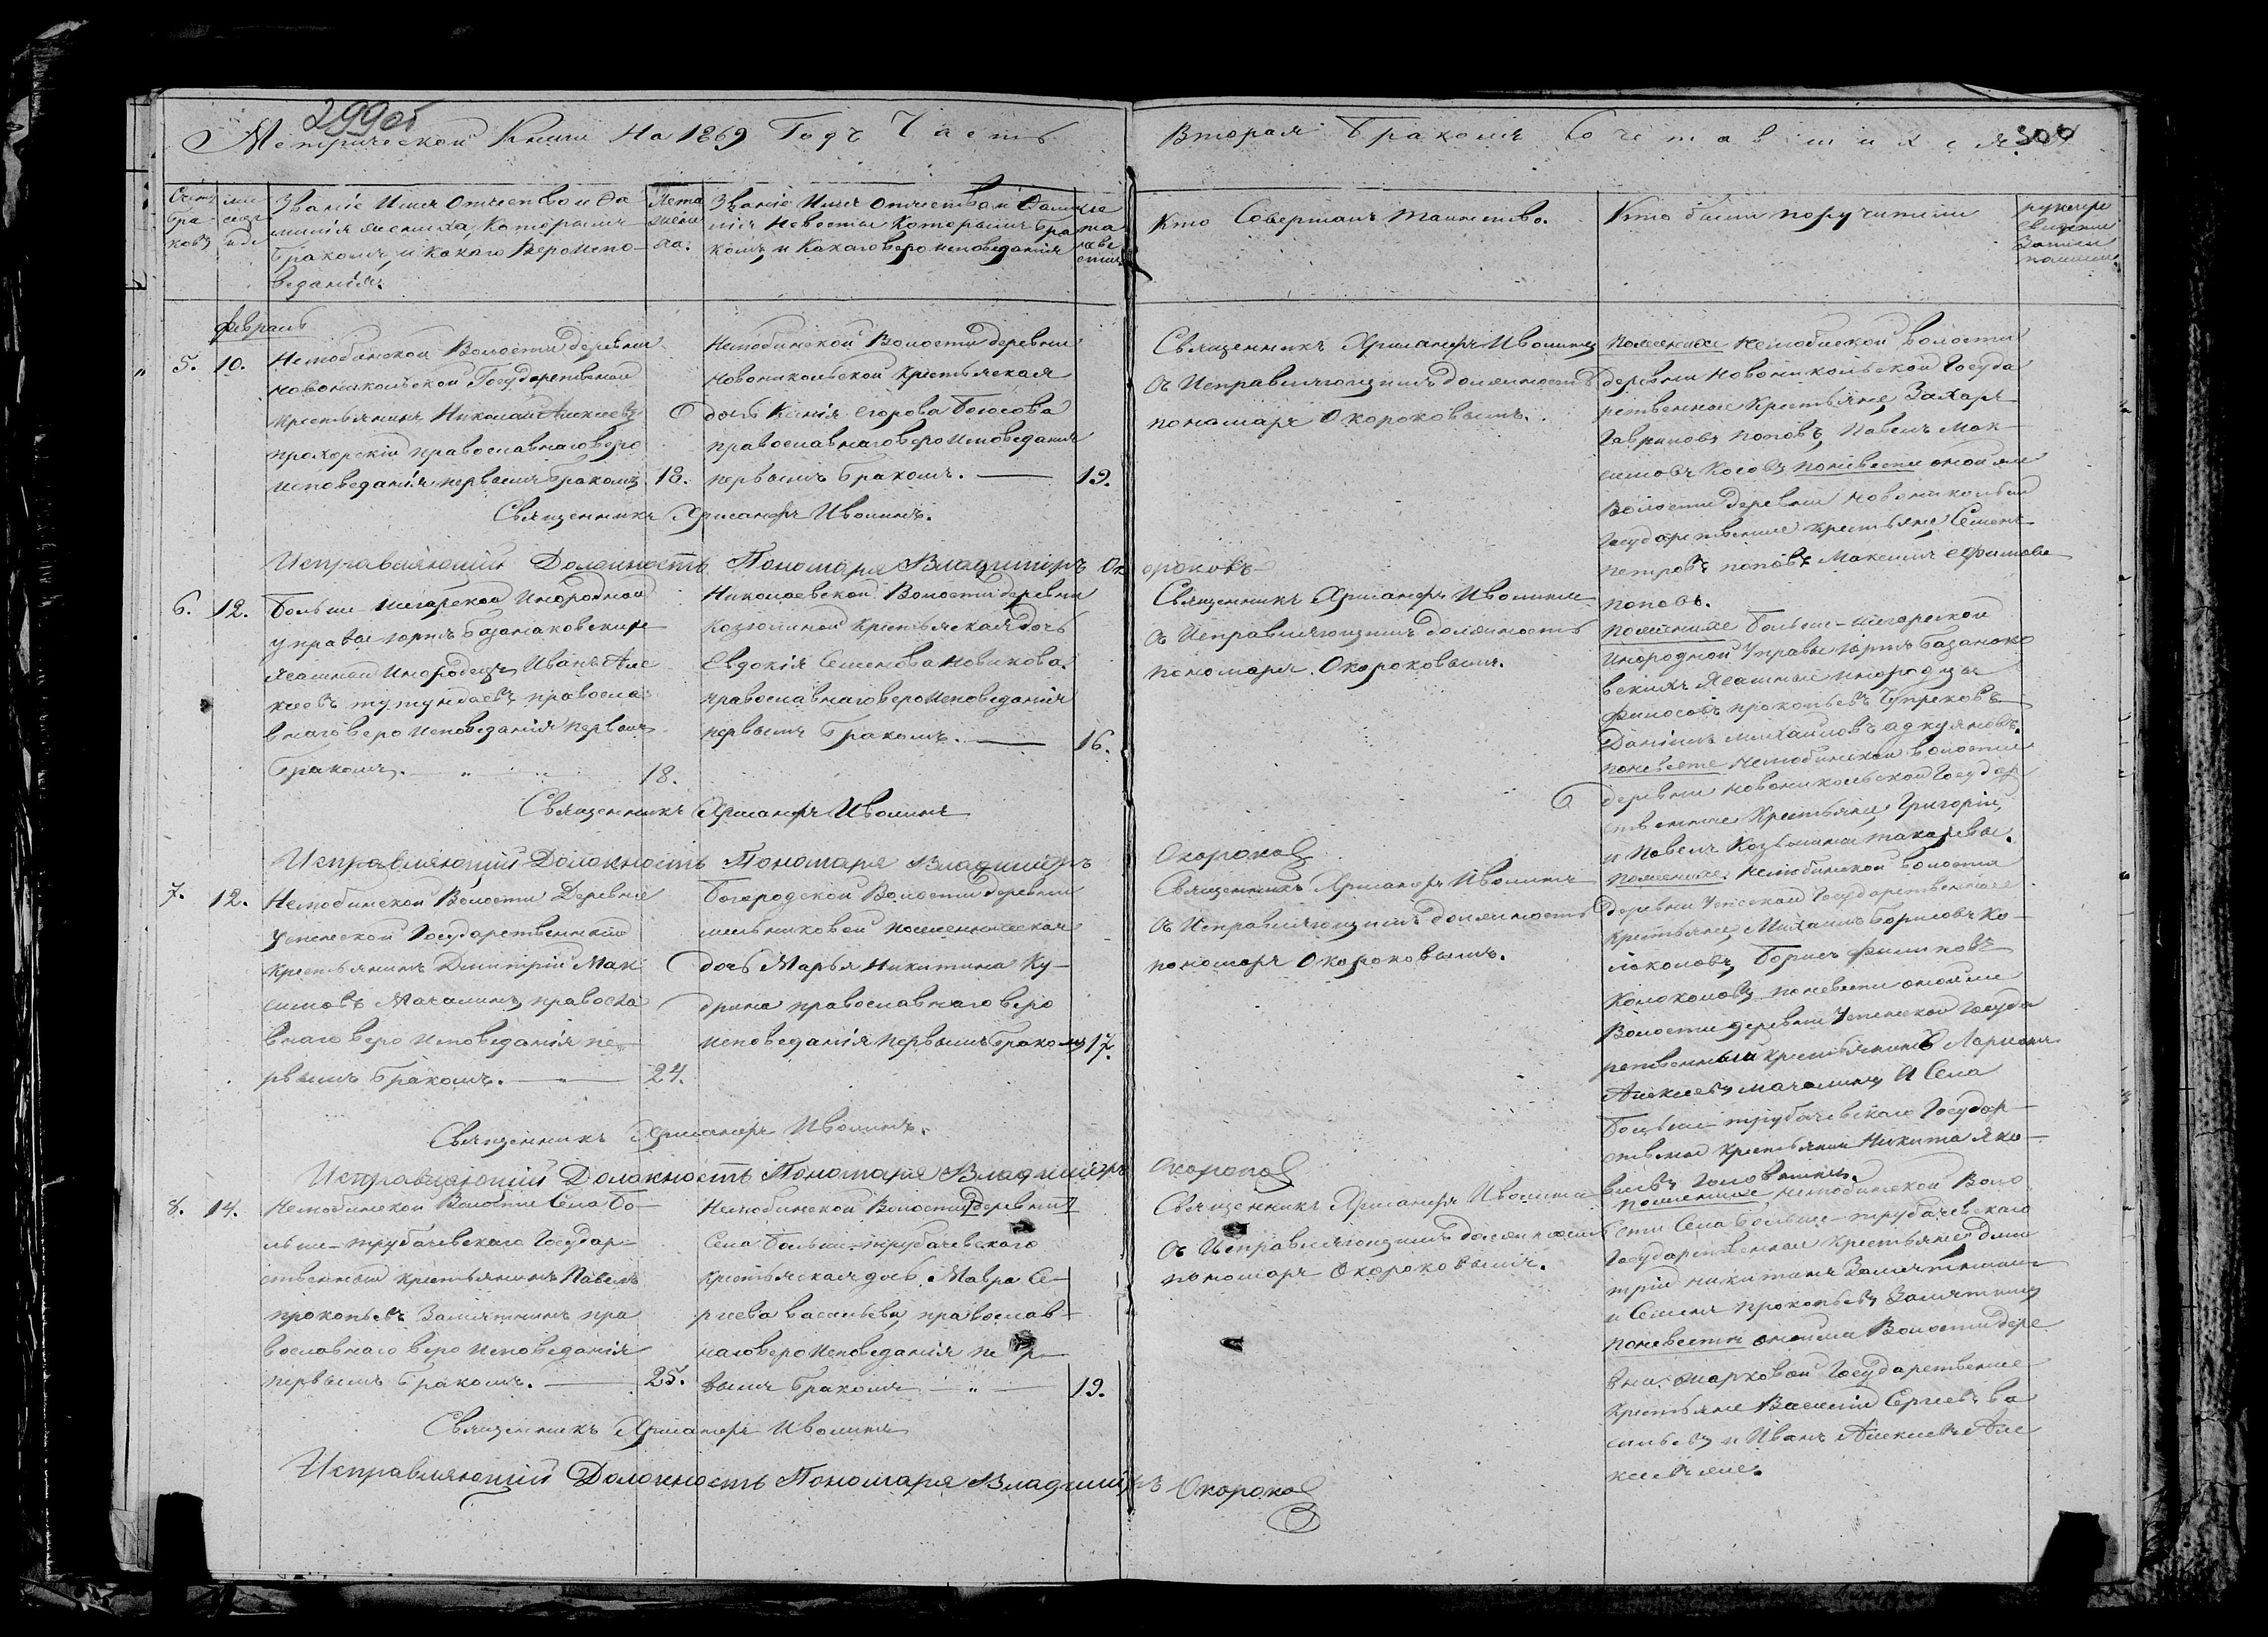 299об
Метрической Книги На 1869 Годъ Часть
Вторая Бракомъ Сочетавшихся.
300
Счетъ
бра-
ковъ
Званіе Имя Отчество и Фа
милія жениха, Которымъ
Бракомъ, и Какаго Вероиспо-
веданія.
Лета
жени
ха.
Званіе Имя Отчество и Фами
лія Невесты Которымъ Бра
комъ, и Какаго вероисповеданія
Кто Совершалъ таинство.
Кто были поручители
февраль
5.
10.
Нелюбинской Волости деревни
новоникольской Государственной
крестьянинъ Николай Алексеевъ
прохорскій православнаго веро
исповеданія первымъ Бракомъ
18.
Нелюбинской Волости деревни
Новоникольской крестьянская
дочь Ксенія Егорова Болосова
православнаго вероисповеданія
первымъ бракомъ.
19.
Священникъ Хрисанфъ Иволинъ
съ Исправляющимъ должность
пономаря Окороковымъ.
по женихе Нелюбиской волости
деревни Новоникольской Госуда
рственные Крестьяне, Захаръ
Гавриловъ поповъ, Павелъ Мак-
симовъ Косовъ по невести оной же
Волости деревни Новоникольской
Государственные крестьяне, Семенъ
петровъ поповъ Максимъ Ефимовъ
поповъ.
Священникъ Хрисанфъ Иволинъ.
Исправляющій Должность Пономаря Владимиръ Окороковъ
6.
12.
Больше Шегарской Инородной
управы юртъ Базанаковскихъ
Ясашной Инородецъ Иванъ Але
ксеевъ тутундаевъ правосла
внаго вероисповеданія первымъ
Бракомъ.
18.
Николаевской Волости деревни
Козюлиной Крестьянская дочь
Евдокія Семенова Новикова.
православнаго вероисповеданія
первымъ Бракомъ.
16.
Священникъ Хрисанфъ Иволинъ
съ Исправляющимъ должность
пономаря Окороковымъ.
по женихе Больше-шегарской
Инородной Управы юртъ базанако
вскихъ Ясашные инородцы
прокопьевъ
Даніилъ михайловъ
по невесте Нелюбинской волости
деревни новоникольской Государ
ственные Крестьяне Григорій,
и Павелъ Козьмины токаревы.
Священникъ Хрисанфъ Иволинъ
Исправляющій Должность Пономаря Владимиръ Окороковъ
7.
12.
Нелюбинской Волости Деревни
Успенской Государственный
крестьянинъ Дмитрій Мак
симовъ Мачалинъ, правосла
внаго вероисповеданія пе-
рвымъ Бракомъ.
24.
Богородской Волости деревни
мельниковой поселенческая
дочь Марья Никитина Ку-
дрина православнаго веро
исповеданія первымъ Бракомъ
17.
Священникъ Хрисанфъ Иволинъ
съ Исправляющимъ должность
пономаря Окороковымъ.
по женихе. Нелюбинской волости
деревни Успенской Государственные
крестьяне, Михаилъ Борисовъ Ко-
локоловъ, Борисъ Филиповъ
Колоколовъ по невести оной же
Волости деревни Успенской Госуда
рственный крестьянинъ Ларионъ
Алексеевъ мачалинъ И Села
Больше-трубачевскаго Государ-
ственной крестьянинъ Никита Яко-
влевъ Головинъ.
Священникъ Хрисанфъ Иволинъ.
Исправляющій Должность Пономаря Владимиръ Окороковъ
8.
14.
Нелюбинской Волости Села Бо-
льше-трубачевскаго Государ-
ственный крестьянинъ Павелъ
прокопьевъ Замятнинъ пра
вославнаго вероисповеданія
первымъ бракомъ.
25.
Нелюбинской Волости деревни
Села Больше-трубачевскаго
крестьянская дочь Мавра Се-
ргиева васильева, православ-
наго вероисповеданія пер-
вымъ бракомъ
19.
Священникъ Хрисанфъ Иволинъ
съ Исправляющимъ должность
пономаря Окороковымъ.
по женихе Нелюбинской Воло
сти Села больше-трубачевскаго
Государственные крестьяне дми
трій никитинъ Замятнинъ
и Семенъ прокопьевъ Замятнинъ
по невести оной же Волости дере
вни. марковой Государственные
Крестьяне Василій Сергеевъ ва
сильевъ и Иванъ Алексеевъ
Священникъ Хрисанфъ Иволинъ
Исправляющій Должность Пономаря Владимиръ Окороковъ